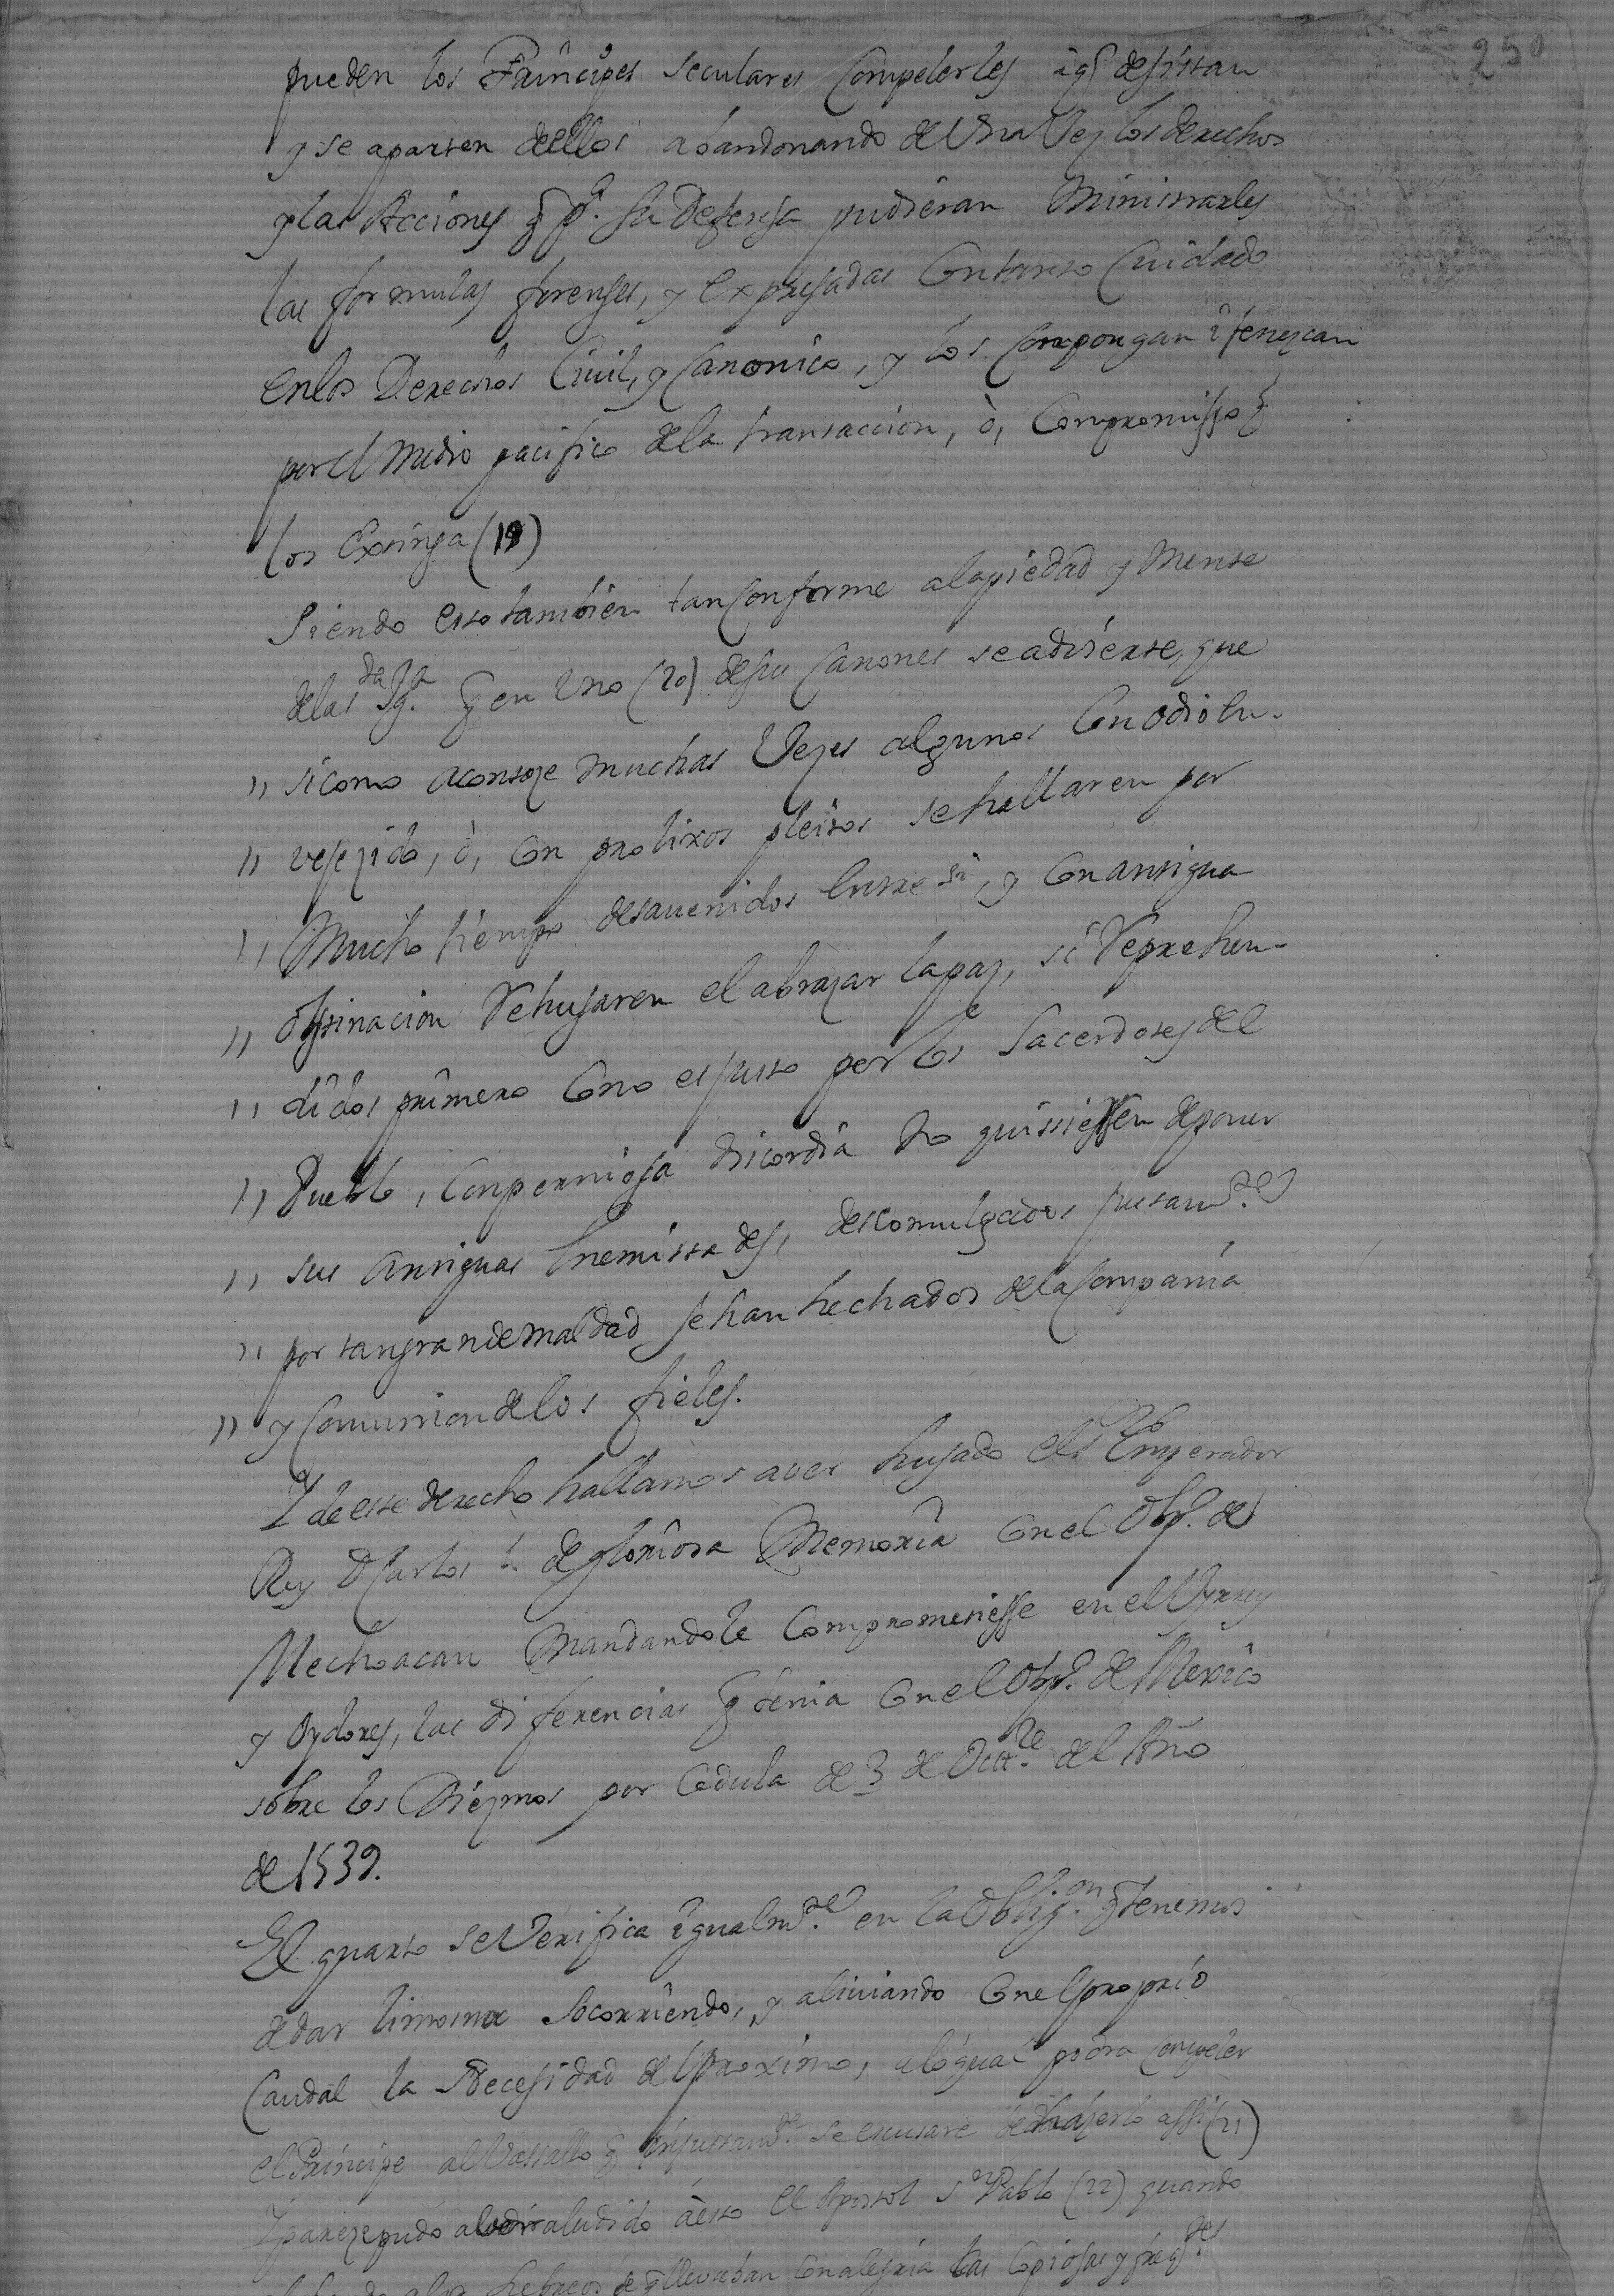 250
pueden los Principes seculares Compelerles á q̃ desistan
y se aparten dellos abandonando de Una Vez los derechos
y las Acciones q̃ pª. su Defensa pudieran Ministrarles
las formulas forenses, y expresadas Con tanto Cuidado
en los Derechos Civil, y Canonico, y los Compongan i fenezcan
por el medio pacifico de la transaccion, ò, Compromisso q̃
los Extinga (19)
Siendo esto tambien tan Conforme a la piedad y Mente
de la sᵗᵃ Igª. q̃ en Uno (20) de sus Canones se advierte, que
,, si como aconteze muchas Vezes algunos Con odio en-
,, vejezido, ò, Con prolixos pleitos se hallaren por
,, Mucho tiempo desavenidos entre si, y Con antigua
,, obstinacion Rehusaren el abrazar la paz, si Reprehen-
,, didos primero Como es justo por los Sacerdotes del
,, Pueblo, Con perniciosa dicordia No quissiessen deponer
,, sus antiguas Enemistades, descomulgados justamᵗᵉ.
,, por tan grande maldad se han hechados de la Compania
,, y Comunion de los fieles.
Y de este derecho hallamos aver husado el sʳ Emperador
Rey D Carlos 1. de gloriosa Memoria Con el Obpº. de
Mechoacan Mandandole Comprometiesse en el Vyrrey
y Oydores, las diferencias q̃ tenia Con el Obpº. de Mexico
sobre los Diezmos por Cedula de 3 de Octtʳᵉ del Año
de 1539.
El quarto se Verifica igualmᵗᵉ. en la Obligᵒⁿ. q̃ tenemos
de dar limosna socorriendo, y aliviando Con el proprio
Caudal la Necesidad del Proximo, a lo qual podra Compeler
el Principe al Vassallo q̃ injustamᵗᵉ. se escusare de hazerlo assi (21)
Y pareze pudo aver aludido à esto el Apostol sⁿ Pablo (22) quando
a los hebreos de q̃ llevaban Con alegria las Copiosas y freqᵗᵉˢ